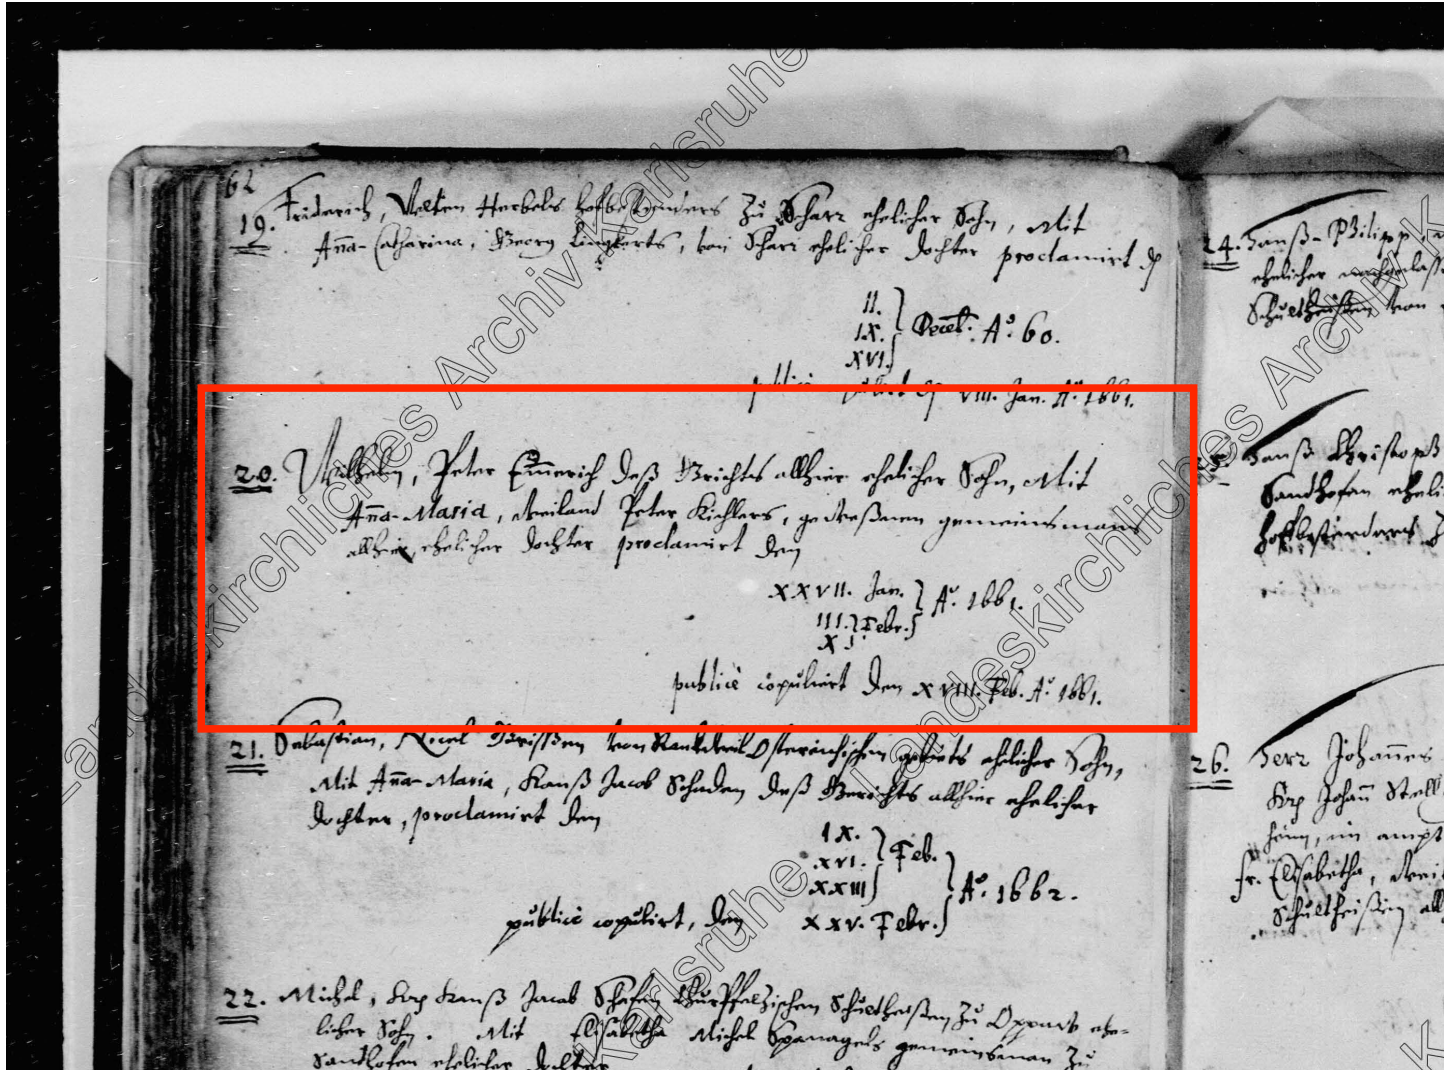 62
19. Friderich, Velten Herbels hoffbestenders zu Scharr ehelicher Sohn, Mit
Anna-Catharina, Georg Lingkerts, von Scharr ehelicher dochter proclamirt d
II.
IX. Deceb: Aº. 60.
XVI.
publicè VIII. Jan. Aº. 1661.
20. Wilhelm, Peter Emerich deß Grichts allhier ehelicher Sohn, Mit
Anna-Maria, weiland Peter Kichlers, geweßenen gemeinsmans
allhier, ehelicher dochter proclamirt den
XXVII. Jan. Aº. 1661.
III. Febr.
X
publicè copulirt den XVIII. Feb. Aº. 1661.
21. Sebastian, von Rankweil Östereichischen gebiets ehelicher Sohn,
Mit Anna-Maria, Hanß Jacob Schaden deß Gerichts allhier ehelicher
dochter, proclamirt den
IX.
XVI. Feb.
XXIII Aº. 1662.
publicè copulirt, den XXV. Febr.
22. Michel, Hanß Jacob Schafen ChurPfaltzischen Schultheißen zu Oppaw ehe-
licher Sohn. Mit Elisabetha Michel Spanagels gemeinsman zu
Sandhofen ehelicher dochter
24. Hanß-Philipp,
ehelicher
Schultheißen von
Hanß Christoph
Sandhofen eheli
hoffbestenders z
26. Herr Johannes
Johann Stell
heim, im ampt
fr. Elisabetha, wei
Schultheißen all
Landeskirchliches Archiv Karlsruhe
Landeskirchliches Archiv K
Karlsruhe